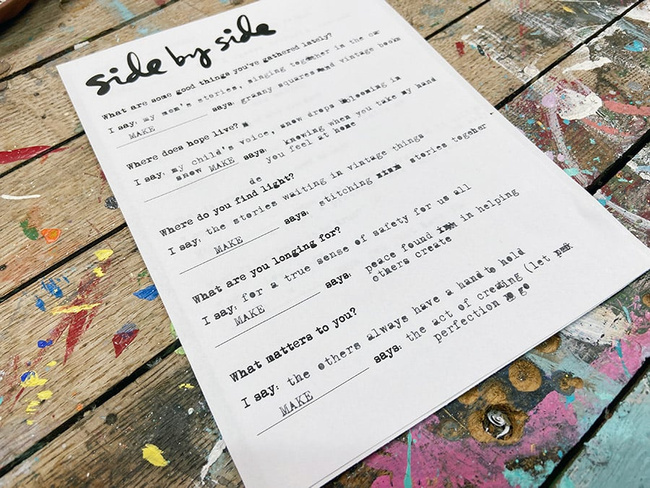 side by side
What are some good things you've gathered lately?
I say: my mom's stories, singing together in the car
MAKE says: granny squares and vintage books
Where does hope live?
I say: my child's voice, snow drops blooming in
snow MAKE says: knowing when you take my hand
de you feel at home
Where do you find light?
I say: the stories waiting in vintage things
MAKE says: stitching stories together
What are you longing for?
I say: for a true sense of safety for us all
MAKE says: peace found in helping
others create
What matters to you?
I say: the others always have a hand to hold
MAKE says: the act of creating (let
perfection go